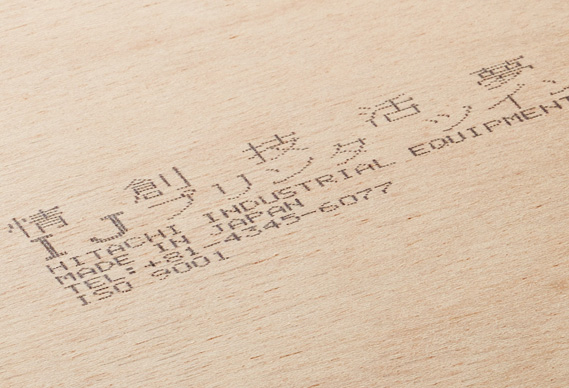 情 創 技 活 夢
IJプリンタ ツイン
HITACHI INDUSTRIAL EQUIPMENT
MADE IN JAPAN
TEL:+81-4345-6077
ISO 9001